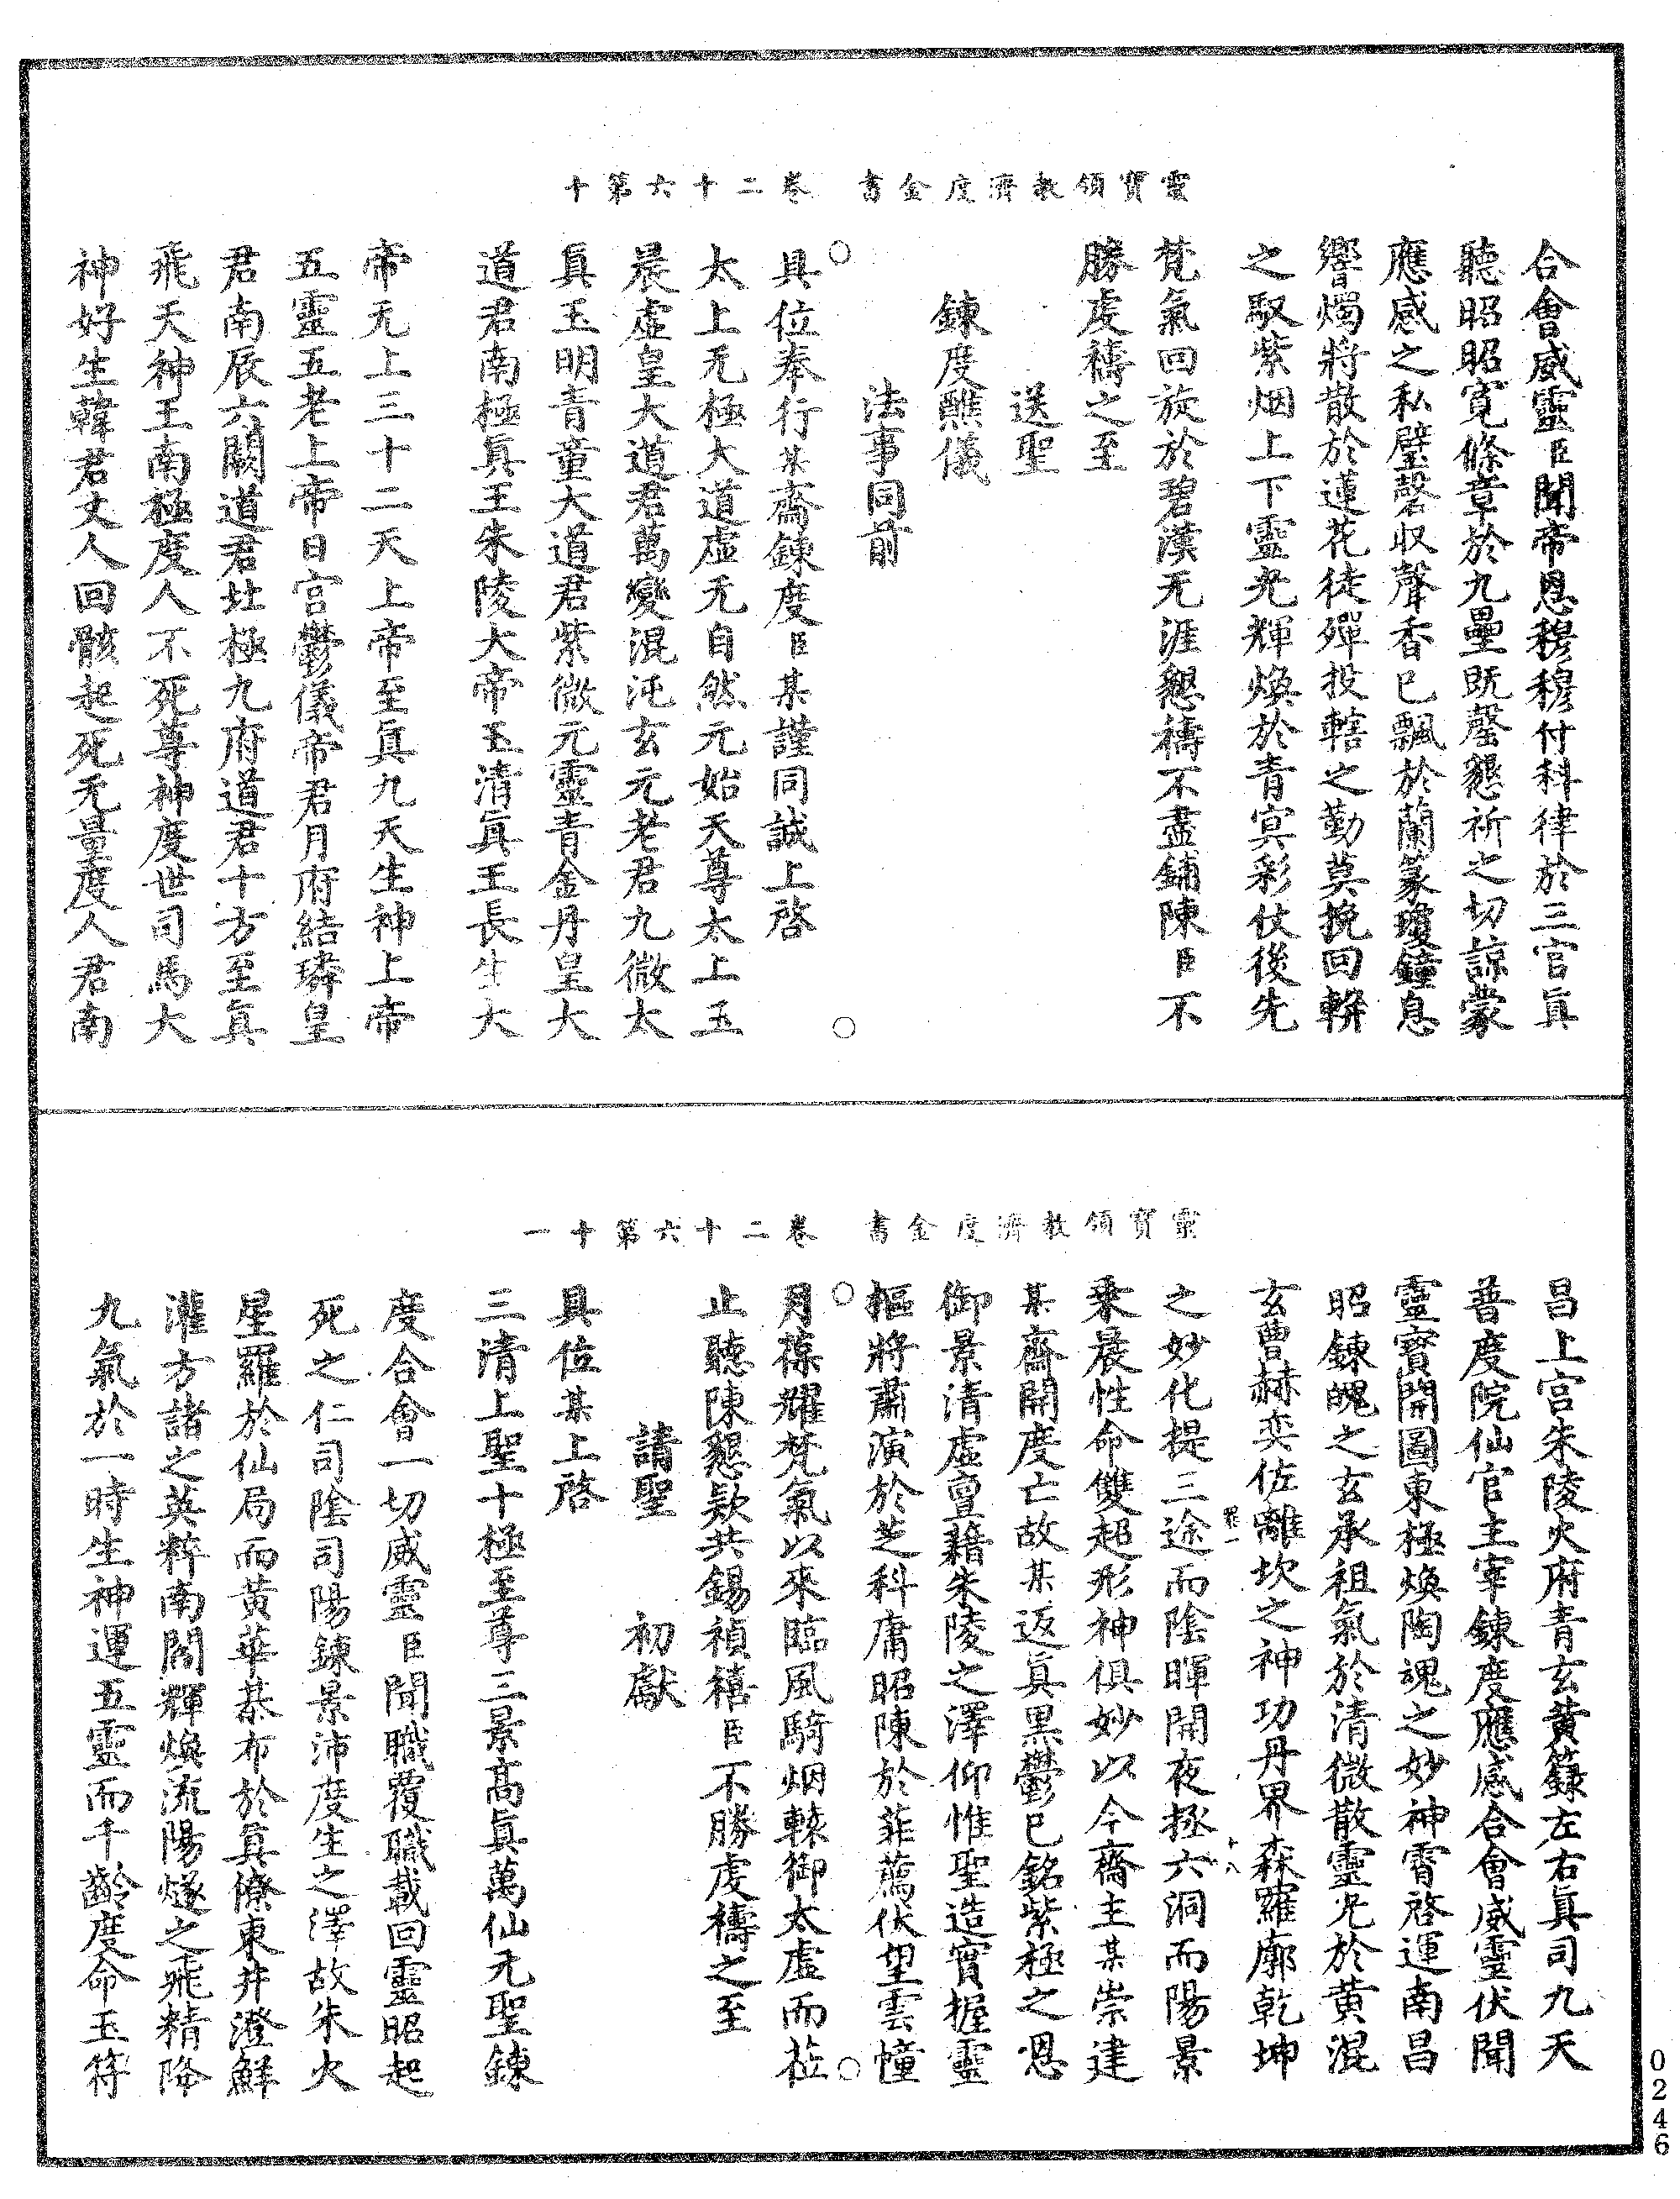 靈寶領教濟度金書 卷二十六第十
合會威靈臣聞帝恩穆穆付科律於三官眞
聽昭昭寛條章於九壘旣罄懇祈之切諒蒙
應感之私璧磬収聲香已飄於蘭篆瓊鐘息
響燭將散於蓮花徒殫投轄之勤莫挽回輧
之馭紫烟上下靈光輝煥於青冥彩仗後先
梵氣回旋於碧漢无涯懇禱不盡鋪陳臣不
勝虔禱之至
送聖
鍊度醮儀
法事同前
具位奉行某齋鍊度臣某謹同誠上啓
太上无極大道虚无自然元始天尊太上玉
晨虚皇大道君萬變混沌玄元老君九微太
眞玉明青童大道君紫微元靈青金丹皇大
道君南極眞王朱陵大帝玉清眞王長生大
帝无上三十二天上帝至眞九天生神上帝
五靈五老上帝日宮鬱儀帝君月府結璘皇
君南辰六闕道君北極九府道君十方至眞
飛天神王南極度人不死尊神度世司馬大
神好生韓君丈人回骸起死无量度人君南
靈寶領教濟度金書 卷二十六第十一
昌上宮朱陵火府青玄黄籙左右眞司九天
普度院仙官主宰鍊度應感合會威靈伏聞
靈寳開圖東極煥陶魂之妙神霄啓運南昌
昭鍊魄之玄承祖氣於清微散靈光於黄混
玄曹赫奕佐離坎之神功丹界森羅廓乾坤
之妙化提三途而陰暉開夜拯六洞而陽景
乗晨性命雙超形神俱妙以今齋主某崇建
某齋開度亡故某返眞黒鬱已銘紫極之恩
御景清虚亶藉朱陵之澤仰惟聖造實握靈
樞將肅演於芝科庸昭陳於菲薦伏望雲幢
月葆耀梵氣以來臨風騎烟輧御太虚而莅
止聽陳懇欵共錫禎禧臣不勝虔禱之至
請聖 初獻
具位某上啓
三清上聖十極至尊三景高眞萬仙元聖鍊
度合會一切威靈臣聞職覆職載回靈昭起
死之仁司陰司陽鍊景沛度生之澤故朱火
星羅於仙局而黄華棊布於眞僚東井澄鮮
灌方諸之英粹南閣輝煥流陽燧之飛精降
九氣於一時生神運五靈而千齡度命玉符
0246